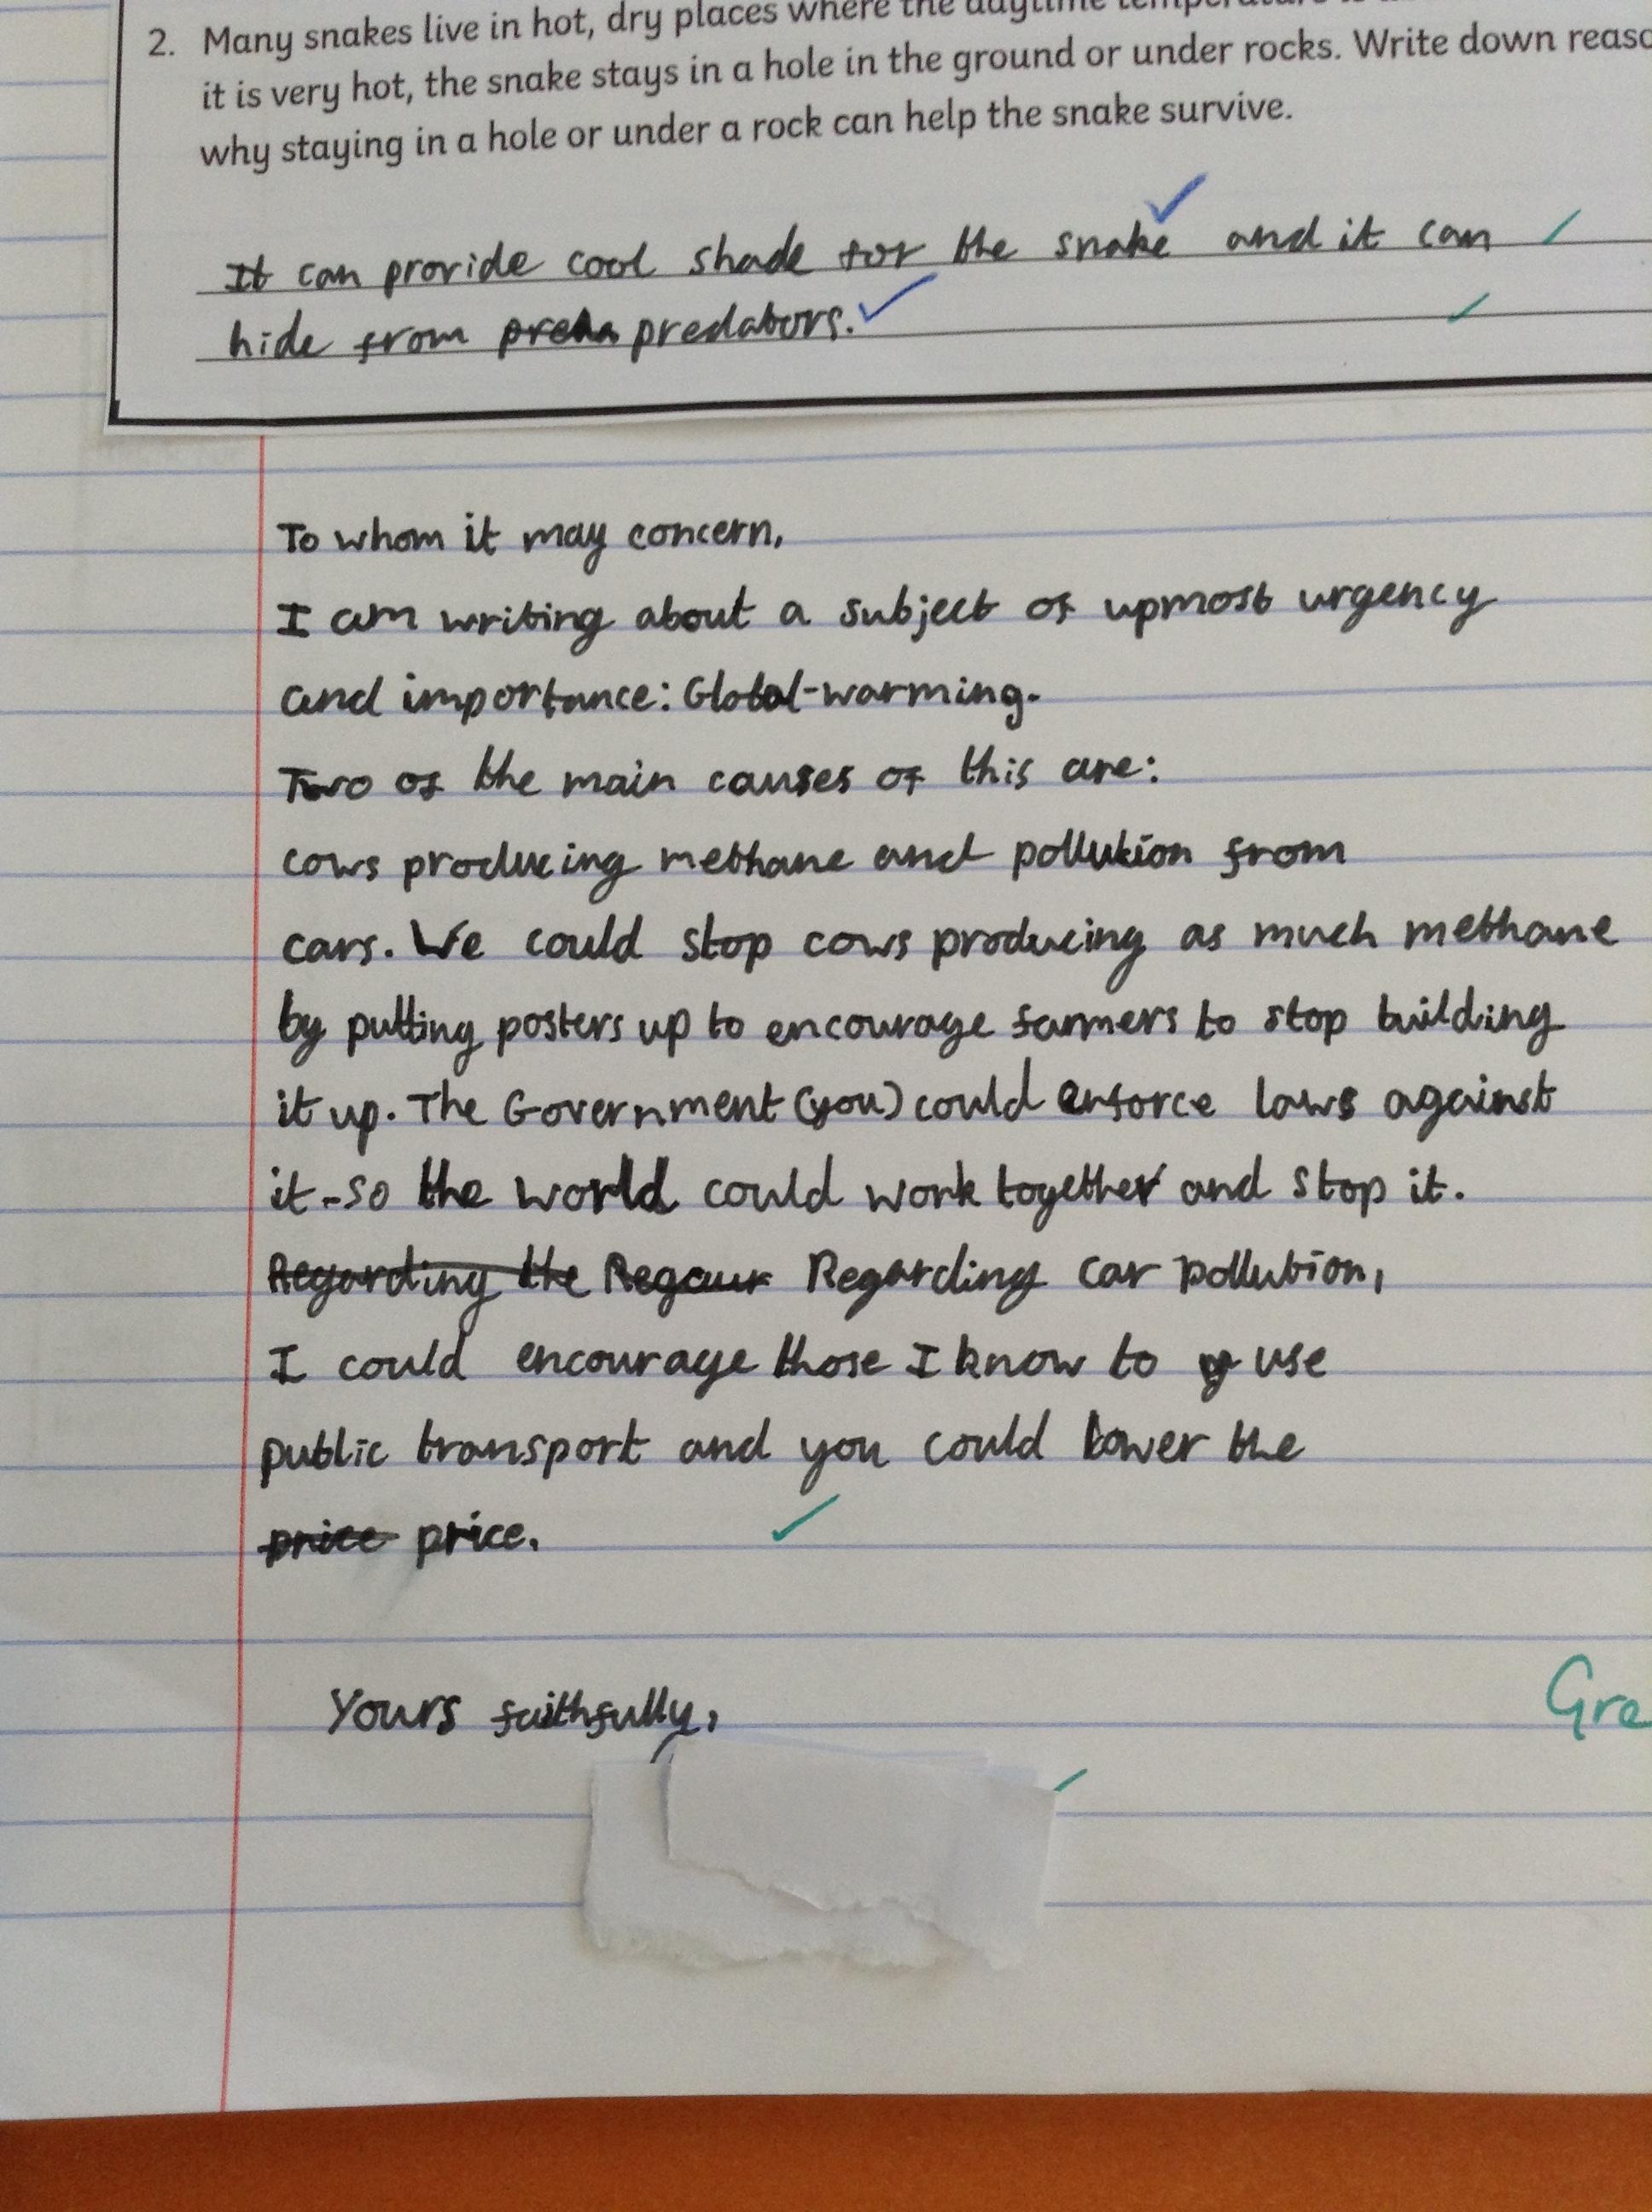 2. Many snakes live in hot, dry places where the daytime
it is very hot, the snake stays in a hole in the ground or under rocks. Write down
why staying in a hole or under a rock can help the snake survive.
It can provide cool shade for the snake and it can
hide from predators.
To whom it may concern,
I am writing about a subject of upmost urgency
and importance: Global-warming.
Two of the main causes of this are:
cows producing methane and pollution from
cars. We could stop cows producing as much methane
by putting posters up to encourage farmers to stop building
it up. The Government (you) could enforce laws against
it-so the world could work together and stop it.
Regarding the Regarding car pollution,
I could encourage those I know to use
public transport and you could lower the
price price.
Yours faithfully,